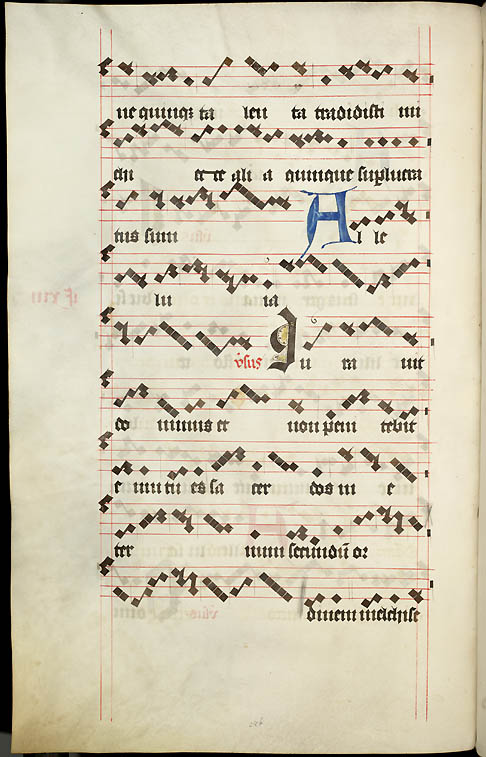 ne quinqꝫ ta len ta tradidisti mi
chi ec ce alia quinque suꝑlucra
tus sum Al le
lu ia
v̄sus Iu ra uit
do minus et non peni tebit
e um tu es sa cer dos in e
ter num secundū or
dinem melchise